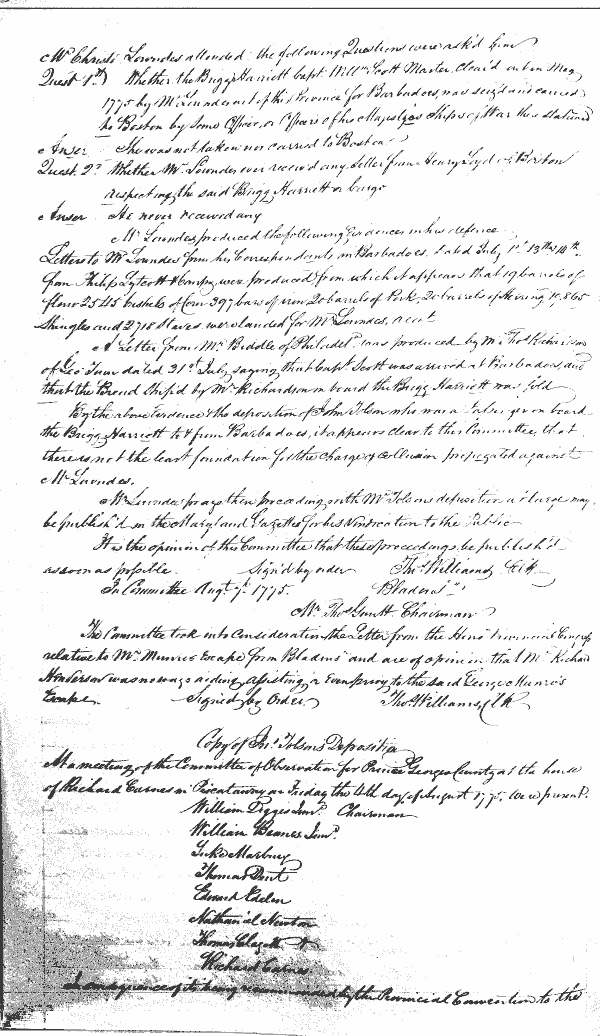 Mr Christr Lowndes attended the following Questions were ask'd him
Quest 1st Whether the Brigg Harriett Capt Willm Scott Master, Clear'd out in May
1775 by Mr Lowndes out of this Province for Barbadoes, was seiz'd and carried
to Boston by some Officer, or Officers of his Majestys Ships of War then stationed
Anser She was not taken nor carried to Boston
Quest. 2d Whether Mr Lowndes ever receiv'd any Letter from Henry Loyd of Boston
respecting the said Brigg Harriett or Cargo
Anser He never received any
Mr Lowndes, produced the following Evidences in his defence
Letters to Mr Lowndes from his Correspondents in Barbadoes, dated July 1st 13th & 14th
from Philip Lytcott & Compy were produced from which it appears that 19 barrels of
flour 2545 bushels of Corn 397 bars of iron 20 barrels of Pork, 20 barrels of Herring 10,865
Shingles and 2718 Staves were landed for Mr Lowndes, acct
A Letter from Mr Biddle of Philadela was produced by Mr Thos Richardson
of Geo: Town dated 31st July, saying that Capt Scott was arrived at Barbadoes, and
that the Bread Ship'd by Mr Richardson on board the Brigg Harriett was sold
By the above Evidence & the deposition of John Tolson who was a Passenger on board
the Brigg Harriett to & from Barbadoes, it appears clear to this Committee, that
there is not the least foundation for the charge of collusion propagated against
Mr Lowndes.
Mr Lowndes prays these proceeding with Mr Tolsons deposition at large may
be publish'd in the Maryland Gazettes for his Vindication to the Public
It is the opinion of this Committee that these proceedings be publish'd
as soon as possible. Sign'd by order Thos Williams, Clk
In Committee Augt 7th 1775. Bladensg
Mr Thos Gantt Chairman
The Committee took into Consideration the Letter from the Honle Provincial Comy
relative to Mr Munros Escape from Bladensg and are of opinion that Mr Richard
Henderson was no ways aiding, assisting, or Even privy to the said George Munro's
Escape. Signed by Order, Thos Williams, Clk
Copy of Jno Tolsons Deposition
At a meeting of the Committee of Observation for Prince Georges County at the house
of Richard Carnes in Piscataway on Friday the 4th day of August 1775, were present.
William Digges Junr. Chairman
William Beanes Junr.
Luke Marbury
Thomas Dent
Edward Edelen
Nathaniel Newton
Thomas Clagett
Richard Carnes
In consequence of its being recommended by the Provincial Convention to the